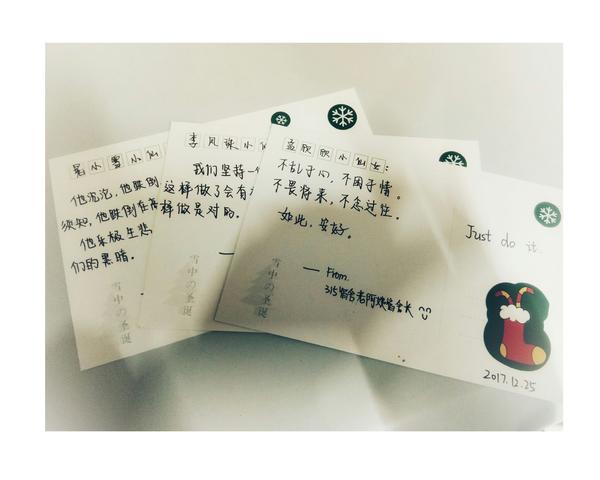 小雪小仙
他沉沦,他跌倒
须知,他跌倒在高
他乐极生悲
们的黑暗。
雪中の圣诞
李凤张小仙
我们坚持一
这样做了会有
样做是对的。
雪中の圣诞
孟欣欣小仙女:
不乱于心,不困于情。
不畏将来,不念过往。
如此,安好。
— From.
315宿舍老阿姨宿舍长
雪中の圣诞
Just do it.
2017.12.25